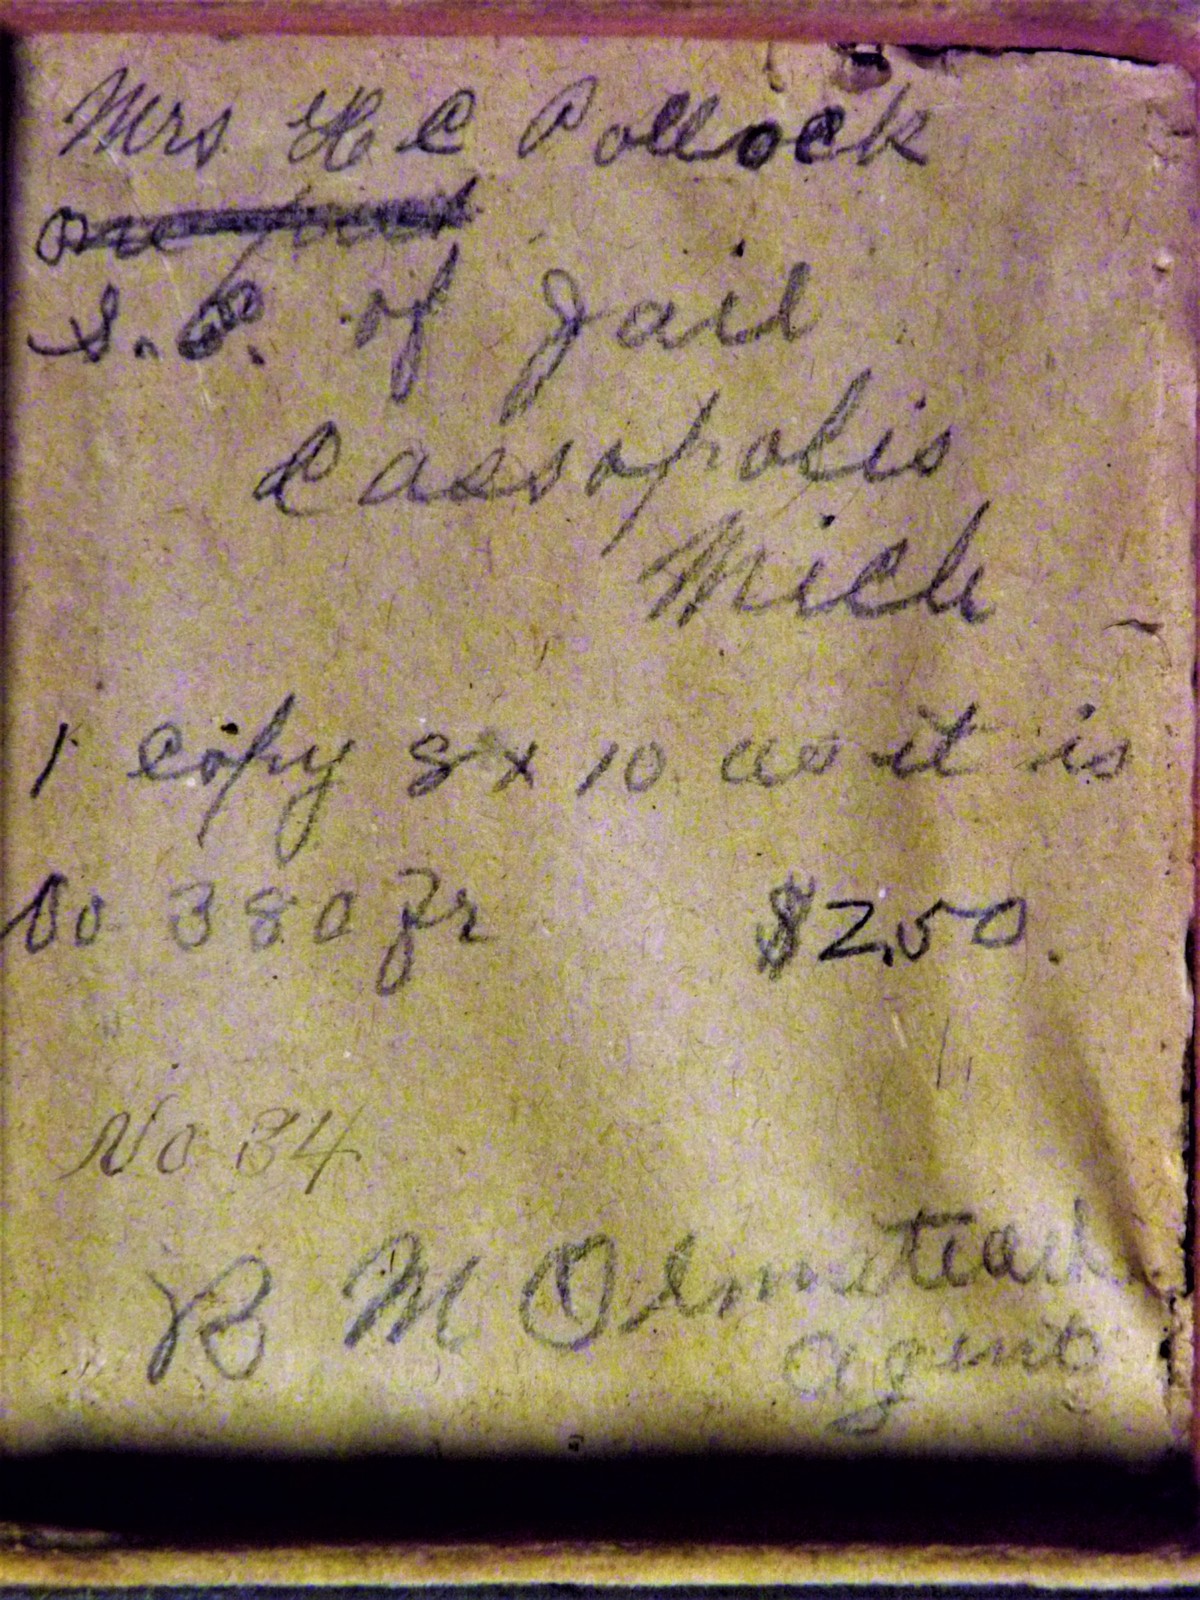 Mrs H C Pollock
S. E. of Jail
Cassopolis
Mich
1 copy 8 x 10 as it is
No 380 Fr $2.50.
No 34
B M Olmstead
agent